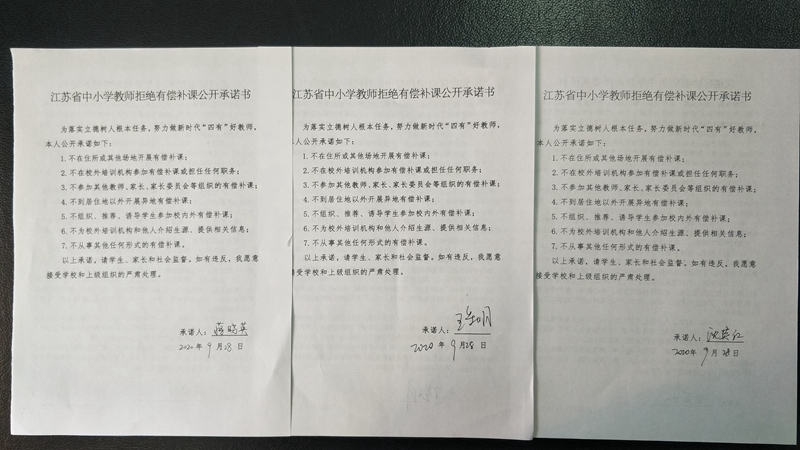 江苏省中小学教师拒绝有偿补课公开承诺书
为落实立德树人根本任务，努力做新时代“四有”好教师，
本人公开承诺如下：
1.不在住所或其他场地开展有偿补课；
2.不在校外培训机构参加有偿补课或担任任何职务；
3.不参加其他教师、家长、家长委员会等组织的有偿补课；
4.不到居住地以外开展异地有偿补课；
5.不组织、推荐、诱导学生参加校内外有偿补课；
6.不为校外培训机构和他人介绍生源、提供相关信息；
7.不从事其他任何形式的有偿补课。
以上承诺，请学生、家长和社会监督。如有违反，我愿意
接受学校和上级组织的严肃处理。
承诺人：蒋晓英
2020年9月28日
江苏省中小学教师拒绝有偿补课公开承诺书
为落实立德树人根本任务，努力做新时代“四有”好教师，
本人公开承诺如下：
1.不在住所或其他场地开展有偿补课；
2.不在校外培训机构参加有偿补课或担任任何职务；
3.不参加其他教师、家长、家长委员会等组织的有偿补课；
4.不到居住地以外开展异地有偿补课；
5.不组织、推荐、诱导学生参加校内外有偿补课；
6.不为校外培训机构和他人介绍生源、提供相关信息；
7.不从事其他任何形式的有偿补课。
以上承诺，请学生、家长和社会监督。如有违反，我愿意
接受学校和上级组织的严肃处理。
承诺人：
2020年9月28日
江苏省中小学教师拒绝有偿补课公开承诺书
为落实立德树人根本任务，努力做新时代“四有”好教师，
本人公开承诺如下：
1.不在住所或其他场地开展有偿补课；
2.不在校外培训机构参加有偿补课或担任任何职务；
3.不参加其他教师、家长、家长委员会等组织的有偿补课；
4.不到居住地以外开展异地有偿补课；
5.不组织、推荐、诱导学生参加校内外有偿补课；
6.不为校外培训机构和他人介绍生源、提供相关信息；
7.不从事其他任何形式的有偿补课。
以上承诺，请学生、家长和社会监督。如有违反，我愿意
接受学校和上级组织的严肃处理。
承诺人：
2020年9月28日